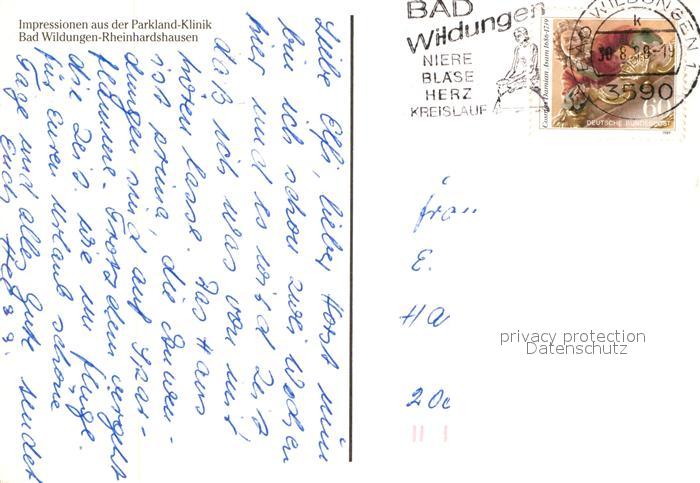 Impressionen aus der Parkland-Klinik
Bad Wildungen-Rheinhardshausen
Liebe Elfi, lieber Horst nun
bin ich schon zwei Wochen
hier und es wird Zeit
daß ich was von mir
hören lasse. Das Haus
ist prima, die Anwen-
dungen sind auf Spar-
flamme. Trotzdem vergeht
die Zeit wie im Fluge.
für Euren Urlaub schöne
Tage und alles Gute sendet
Euch
BAD
Wildungen
NIERE
BLASE
HERZ
KREISLAUF
BAD WILDUNGEN 1
k
30.8.
3590
Cosmas Damian Asam 1686-1739
60
DEUTSCHE BUNDESPOST
Frau
E.
HA
privacy protection
Datenschutz